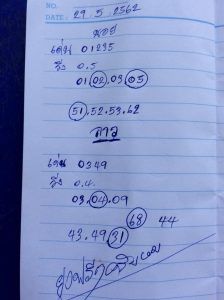 NO.
DATE. 29 5 2562
ฮานอย
เด่น 01235
วิ่ง 0.5
01 02.03 05
51.52.53.62
ลาว
เด่น 0349
วิ่ง 0.4.
03.04.09
68 44
43.49 31